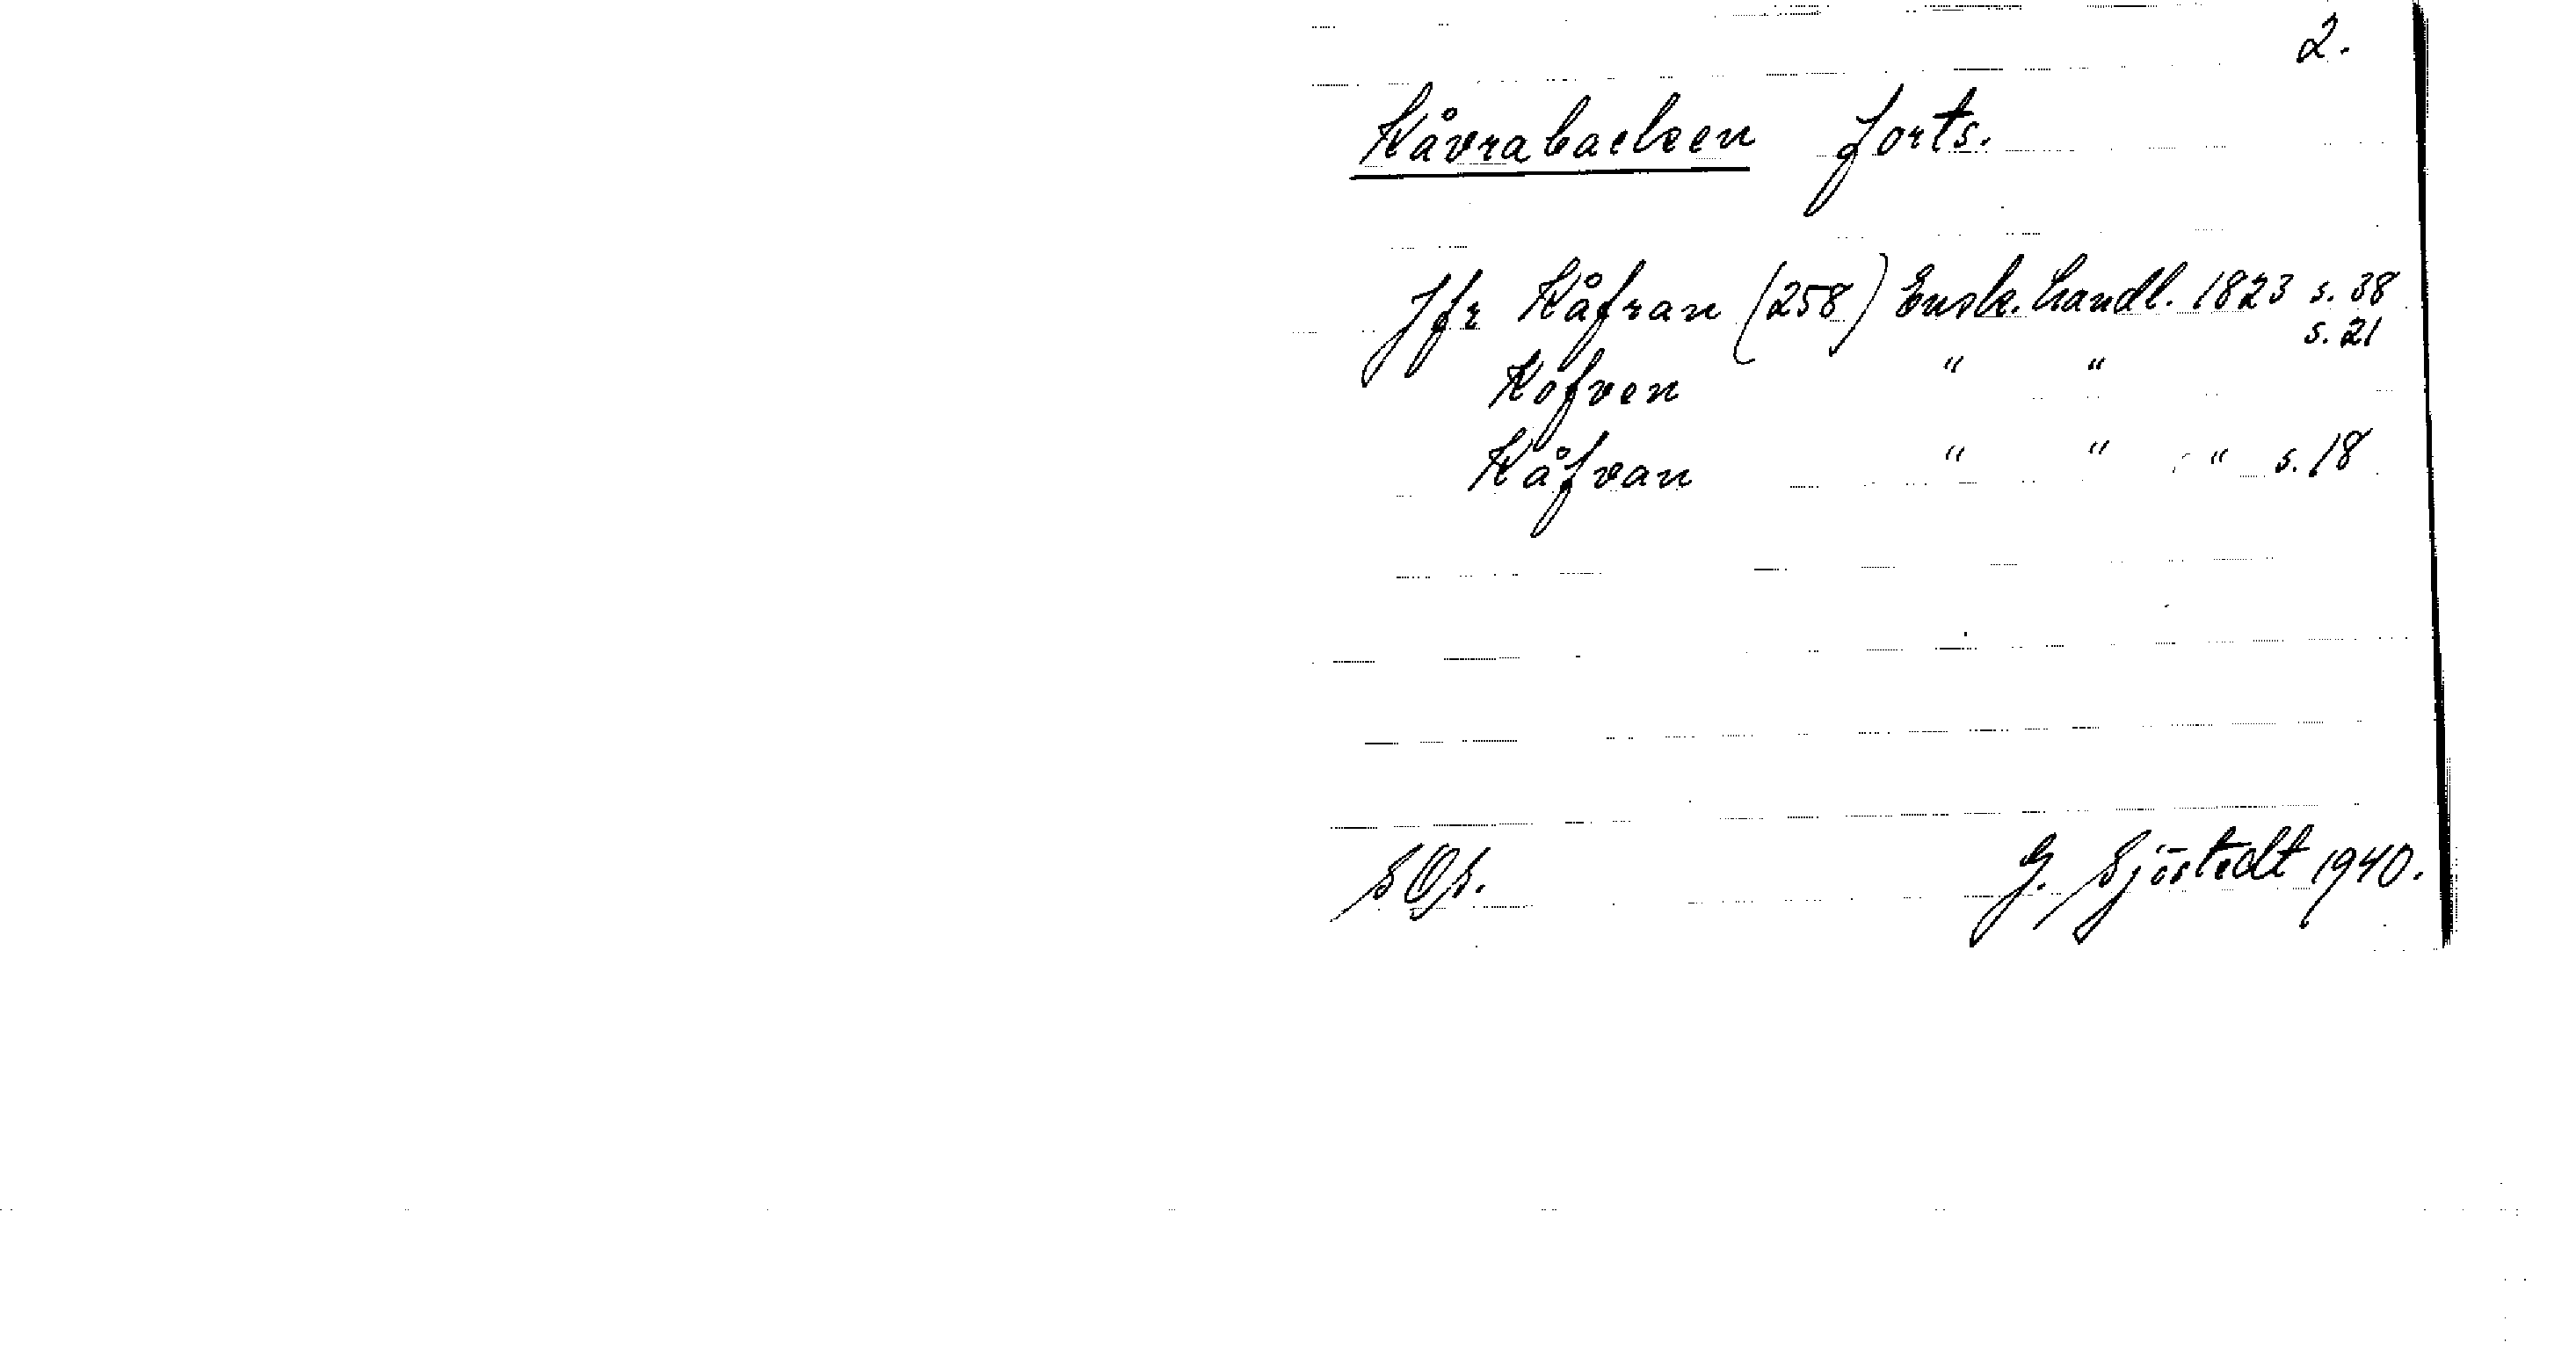 2.
Kåvrabacken forts.
Jfr Kåfran (258) Ensk. handl. 1823 s. 38
s. 21
Kofven " "
Kåfvan " " " s. 18
SOs. G. Sjöstedt 1940.